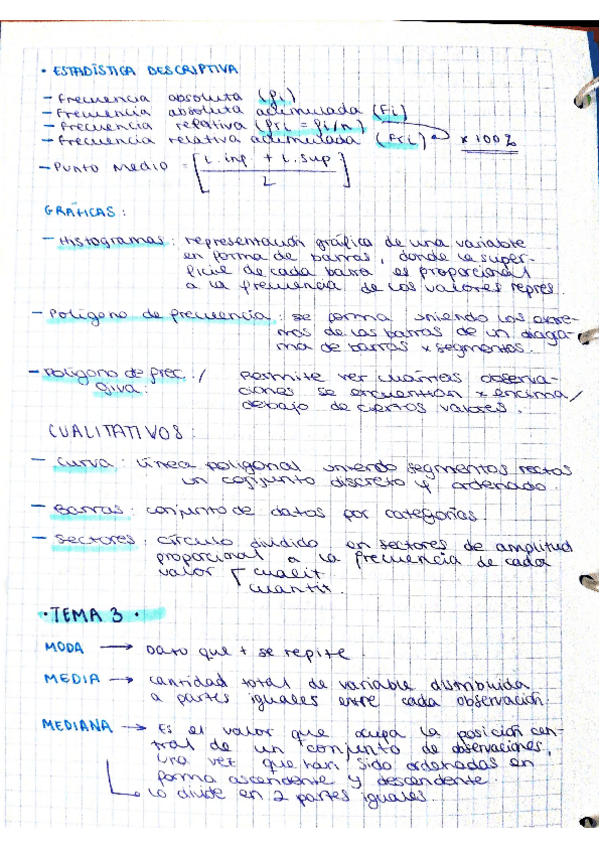 • ESTADÍSTICA DESCRIPTIVA
- Frecuencia absoluta (fi)
- Frecuencia absoluta acumulada (Fi)
- Frecuencia relativa (fri = fi/n)
- Frecuencia relativa acumulada (Fri) x 100%
- Punto Medio = [L.inf + L.sup / 2]
GRÁFICAS:
- Histogramas: representación gráfica de una variable
en forma de barras, donde la super-
ficie de cada barra es proporcional
a la frecuencia de los valores repres.
- Polígono de frecuencia: se forma uniendo los extre-
mos de las barras de un diagra-
ma de barras x segmentos.
- Polígono de frec. / permite ver cuántas observa-
giva: ciones se encuentran x encima/
debajo de ciertos valores.
CUALITATIVOS:
- Curva: línea poligonal uniendo segmentos rectos
un conjunto discreto y ordenado.
- Barras: conjunto de datos por categorías.
- Sectores: círculo dividido en sectores de amplitud
proporcional a la frecuencia de cada
valor cualit.
cuantit.
• TEMA 3 •
MODA → Dato que + se repite.
MEDIA → cantidad total de variable distribuida
a partes iguales entre cada observación.
MEDIANA → Es el valor que ocupa la posición cen-
tral de un conjunto de observaciones,
una vez que han sido ordenadas en
forma ascendente y descendente.
Lo divide en 2 partes iguales.